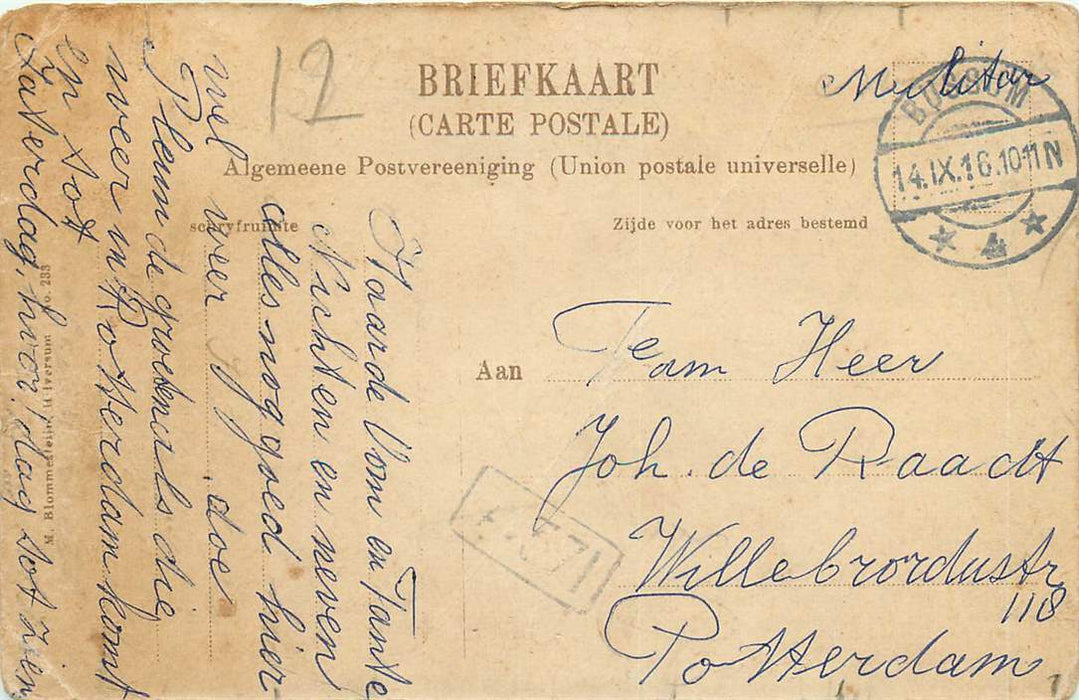 12
BRIEFKAART
(CARTE POSTALE)
Algemeene Postvereeniging (Union postale universelle)
Zijde voor het adres bestemd
Militar
BUSSUM
14.IX.16.10-11N
4
Aan Fam Heer
Joh. de Raadt
Willebrordustr
118
Rotterdam
Waarde Oom en Tante
Nichten en neven
alles nog goed hier
wel voor doe
Pleun de groeten als die
weer in Rotterdam komt
en tot
Zaterdag, hoor! dag tot zien
M. Blommestein, Hilversum No. 233